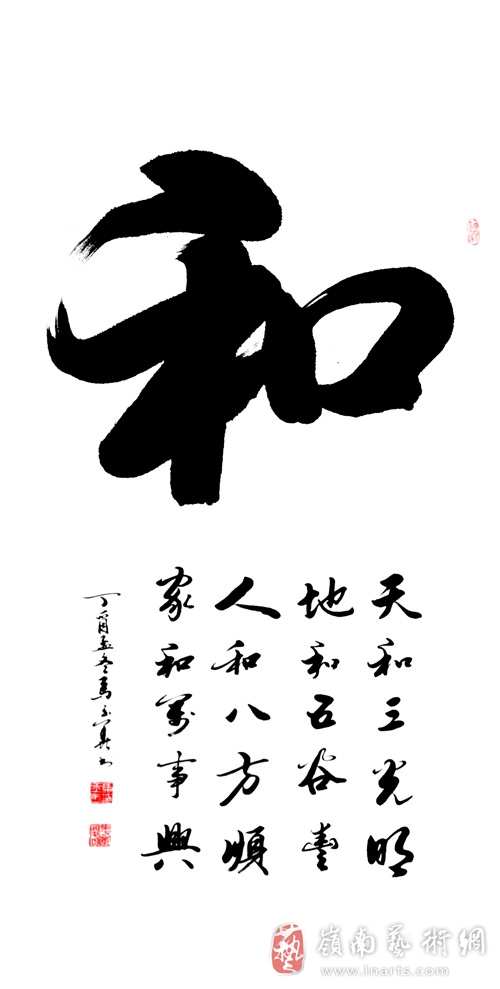 和
天和三光明
地和五谷豊
人和八方順
家和萬事興
丁酉孟冬馬
嶺南藝術網
www.lnarts.com